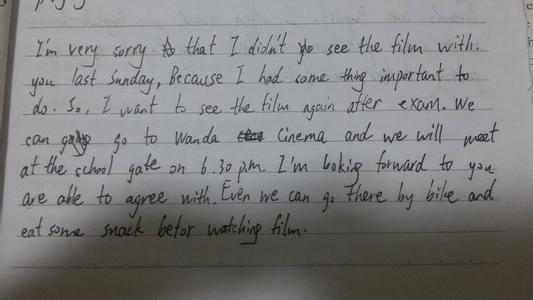 I'm very sorry that I didn't see the film with
you last Sunday, Because I had some thing important to
do. So, I want to see the film again after exam. We
can go to Wanda Cinema and we will meet
at the school gate on 6.30 p.m. I'm loking forward to you
are able to agree with. Even we can go There by bike and
eat some snack befor watching film.